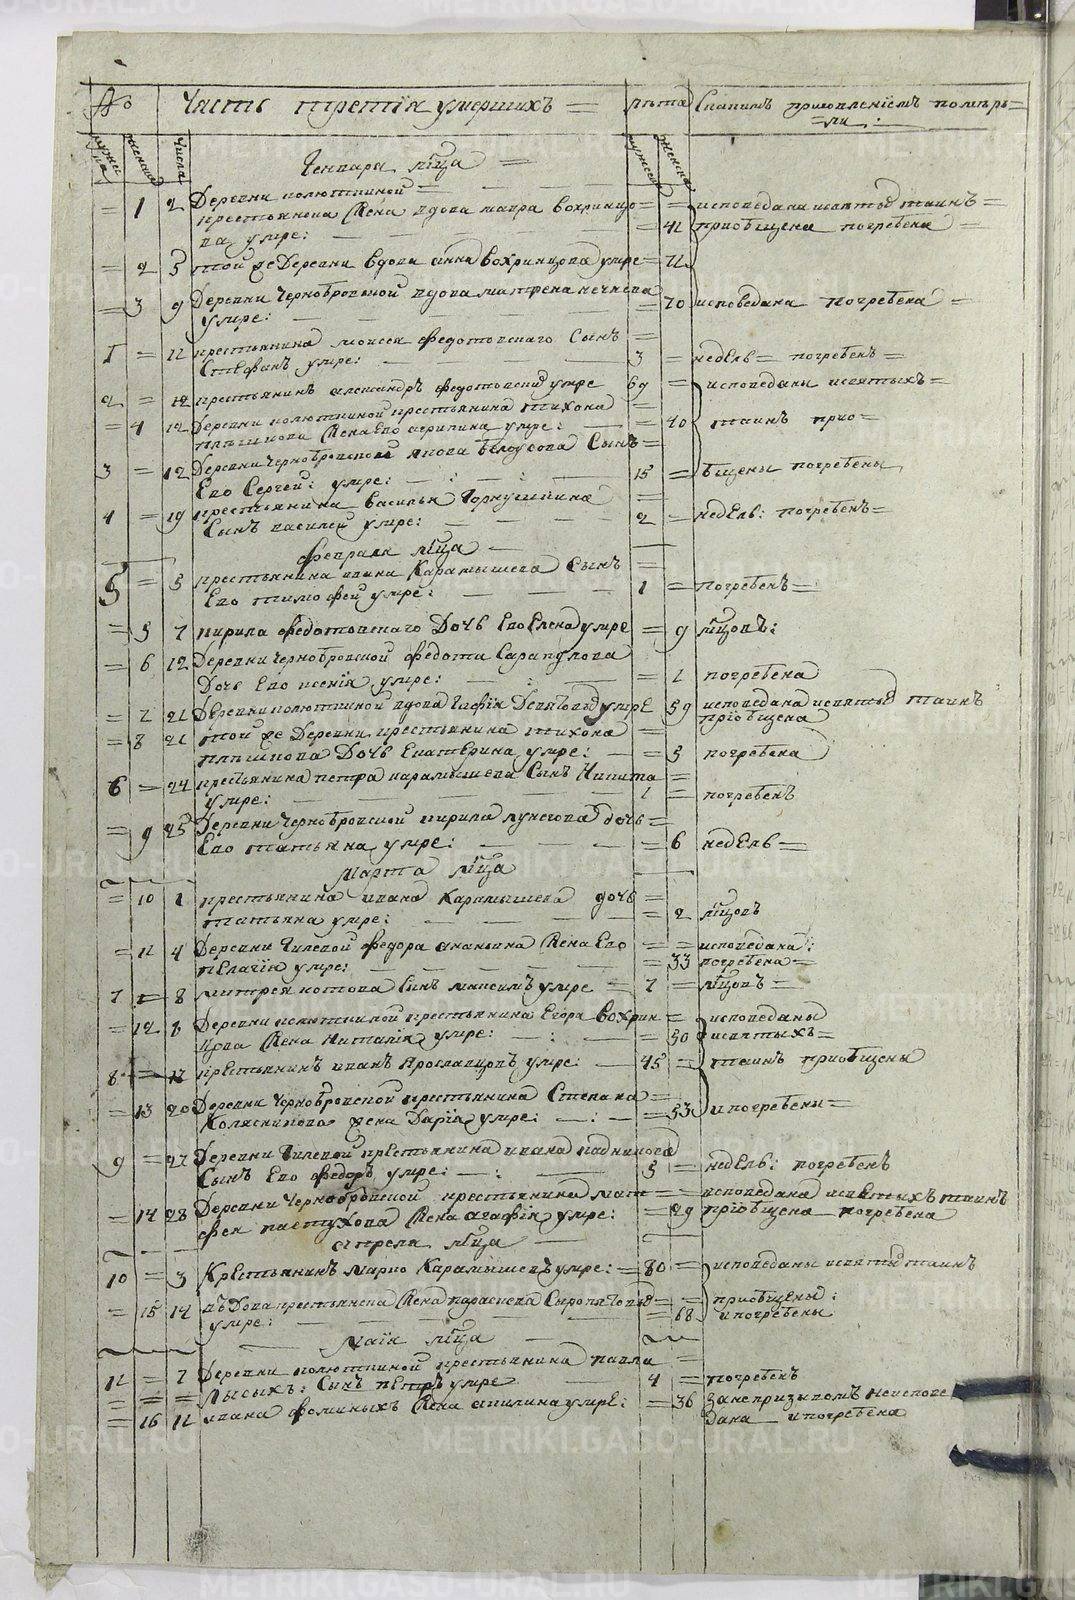 № Часть третїя умершихъ = лѣта Скакимъ приключенїемъ померь=
=ли
мужеска женска числа мужеска женска
Генваря мца =
Деревни полютиной
= 1 2 крестьянска жена вдова мавра вохринцо= = исповедана исвятыхъ таинъ =
ва умре: = 42 прїобщена погребена =
= 2 5 той же деревни вдова анна вохринцова умре = 72
= 3 9 Деревни Чернобровской вдова матрена
умре: = 70 исповедана погребена =
1 = 12 крестьянина моисея федотовскаго сынъ =
Стефанъ умре: 3 = недель = погребенъ =
2 = 12 крестьянинъ александръ федотовский умре 69 = исповеданы исвятыхъ =
= 4 12 Деревни полютиной крестьянина тихона = 40 таинъ прио=
жена его агрипина умре:
3 = 12 Деревни Чернобровской якова белоусова сынъ =
Его Сергей: умре: 15 = бщены погребены
4 = 19 крестьянина василья Горнушкина =
Сынъ василей умре: 2 = недель: погребенъ =
февраля мца
5 = 5 крестьянина ивана Карамышева Сынъ =
Его тимофей умре: 1 = погребенъ =
= 5 7 кирила федотовскаго Дочь Его Елена умре = 9 мцовъ:
= 6 12 Деревни Чернобровской федота Сарапулова
Дочь Его ксенїя умре: = 1 погребена
= 7 21 Деревни полютиной вдова умре 59 исповедана исвятыхъ таинъ
прїобщена
= 8 21 той же Деревни крестьянина тихона =
Дочь Екатерина умре: = 5 погребена
6 = 24 крестьянина петра карамышева Сынъ Никита =
умре: 1 = погребенъ
= 9 25 Деревни Чернобровской кирила лунегова дочь =
Его татьяна умре: = 6 недель =
марта мца
= 10 1 крестьянина ивана Карамышева дочь =
татьяна умре: = 2 мцовъ
= 11 4 Деревни Гилевой федора ананьина жена Его = = исповедана:
пелагїя умре: = 33 погребена =
7 = 8 митрея котова Сынъ максимъ умре = 7 = мцовъ =
= 12 8 Деревни полютиной крестьянина Егора Вохрин = исповеданы
цова жена наталїя умре: = 50 исвятыхъ =
8 = 12 крестьянинъ иванъ Ярославцовъ умре: 45 = таинъ приобщены
= 13 20 Деревни Чернобровской крестьянина Степана =
Колясникова жена Дарїя умре: = 53 ипогребены =
9 = 27 Деревни Гилевой крестьянина ивана
Сынъ Его федоръ умре: 5 = недель: погребенъ
= 14 28 Деревни Чернобровской крестьянина мат = = исповедана исвятыхъ таинъ
фея пастухова жена агафїя умре: = 29 прїобщена погребена
апреля мца
10 = 3 Крестьянинъ марко Карамышевъ умре: = 80 = исповеданы исвятыхъ таинъ
= 15 14 вдова крестьянска жена параскева Сыропятова = = приобщены:
умре: = 68 ипогребены
маїя мца
11 = 7 Деревни полютиной крестьянина павла =
= = = Лысыхъ: Сынъ петръ умре 4 = погребенъ
= 16 12 ивана фоминыхъ жена акилина умре: = 36 занепризывомъ неиспове
дана ипогребена